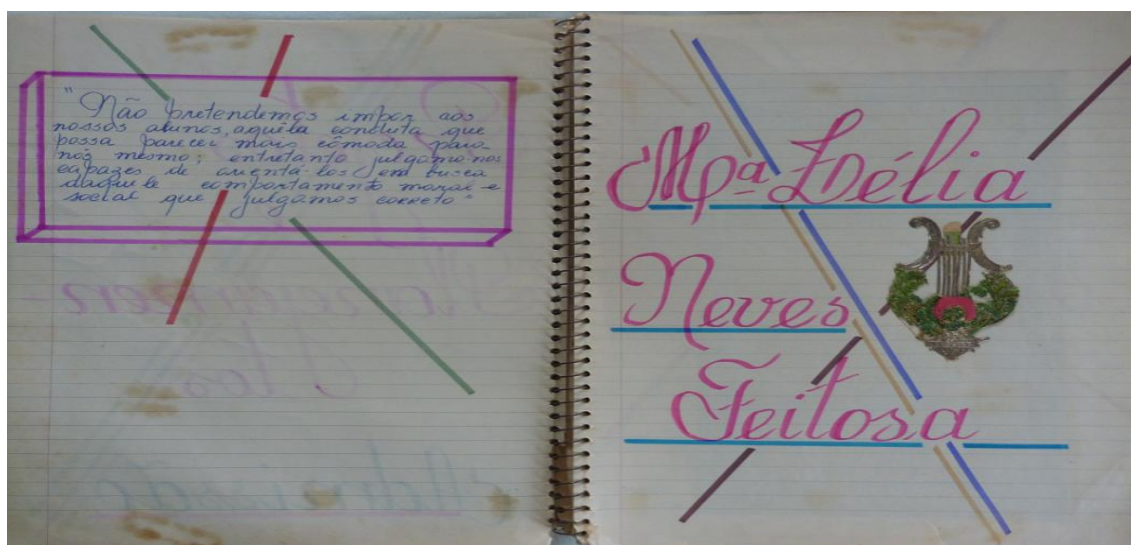 "Não pretendemos impor aos
nossos alunos, aquela conduta que
possa parecer mais cômoda para
nós mesmo; entretanto julgamo-nos
capazes de orientá-los em busca
daquele comportamento moral e
social que julgamos correto"
Mª Lélia
Neves
Feitosa